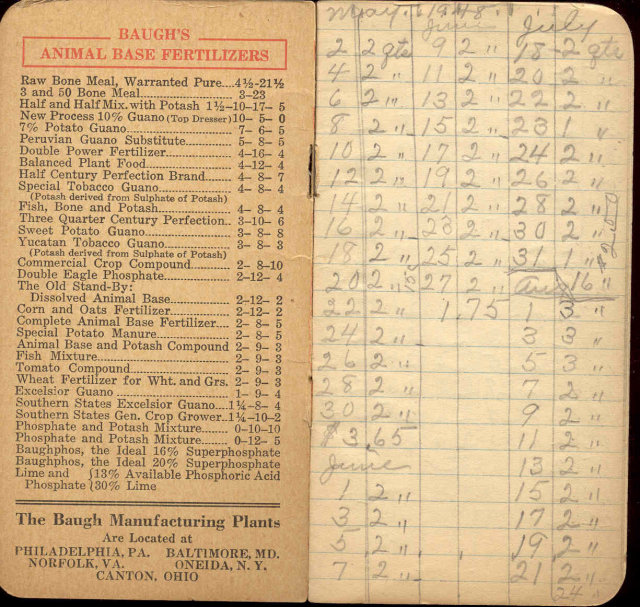 BAUGH'S
ANIMAL BASE FERTILIZERS
Raw Bone Meal, Warranted Pure....4½-21½
3 and 50 Bone Meal 3-23
Half and Half Mix. with Potash 1½-10-17- 5
New Process 10% Guano (Top Dresser) 10- 5- 0
7% Potato Guano 7- 6- 5
Peruvian Guano Substitute 5- 8- 5
Double Power Fertilizer 4-16- 4
Balanced Plant Food 4-12- 4
Half Century Perfection Brand 4- 8- 7
Special Tobacco Guano 4- 8- 4
(Potash derived from Sulphate of Potash)
Fish, Bone and Potash 4- 8- 4
Three Quarter Century Perfection 3-10- 6
Sweet Potato Guano 3- 8- 8
Yucatan Tobacco Guano 3- 8- 3
(Potash derived from Sulphate of Potash)
Commercial Crop Compound 2- 8-10
Double Eagle Phosphate 2-12- 4
The Old Stand-By:
Dissolved Animal Base 2-12- 2
Corn and Oats Fertilizer 2-12- 2
Complete Animal Base Fertilizer 2- 8- 5
Special Potato Manure 2- 8- 5
Animal Base and Potash Compound 2- 9- 3
Fish Mixture 2- 9- 3
Tomato Compound 2- 9- 3
Wheat Fertilizer for Wht. and Grs. 2- 9- 3
Excelsior Guano 1- 9- 4
Southern States Excelsior Guano 1¼-8- 4
Southern States Gen. Crop Grower 1¼-10-2
Phosphate and Potash Mixture 0-10-10
Phosphate and Potash Mixture 0-12- 5
Baughphos, the Ideal 16% Superphosphate
Baughphos, the Ideal 20% Superphosphate
Lime and {13% Available Phosphoric Acid
Phosphate {30% Lime
The Baugh Manufacturing Plants
Are Located at
PHILADELPHIA, PA. BALTIMORE, MD.
NORFOLK, VA. ONEIDA, N. Y.
CANTON, OHIO
May. 1948
June July
2 2 qts 9 2 " 18 - 2 qts
4 2 " 11 2 " 20 2 "
6 2 " 13 2 " 22 2 "
8 2 " 15 2 " 23 1 "
10 2 " 17 2 " 24 2 "
12 2 " 19 2 " 26 2 "
14 2 " 21 2 " 28 2 "
16 2 " 23 2 " 30 2 "
18 2 " 25 2 " 31 1 "
20 2 " 27 2 " Aug 16 "
22 2 " 1.75 1 3 "
24 2 " 3 3 "
26 2 " 5 3 "
28 2 " 7 2 "
30 2 " 9 2 "
$3.65 11 2 "
June 13 2 "
1 2 " 15 2 "
3 2 " 17 2 "
5 2 " 19 2 "
7 2 " 21 2 "
24